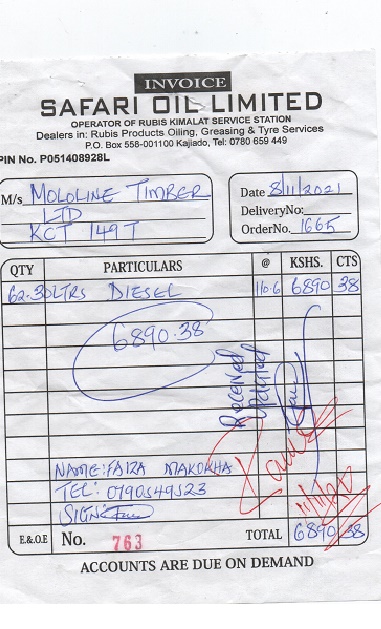 INVOICE
SAFARI OIL LIMITED
OPERATOR OF RUBIS KIMALAT SERVICE STATION
Dealers in: Rubis Products Oiling, Greasing & Tyre Services
P.O. Box 558-001100 Kajiado, Tel: 0780 659 449
PIN No. P051408928L
M/s MOLOLINE TIMBER
LTD
KCT 149T
Date 8/11/2021
DeliveryNo:
OrderNo. 1665
QTY PARTICULARS @ KSHS. CTS
62.30LTRS DIESEL 110.6 6890 38
6890.38
Received
NAME: FAIZA MAKOKHA
TEL: 0790549523
SIGN:
E.&O.E No. 763 TOTAL 6890 38
ACCOUNTS ARE DUE ON DEMAND